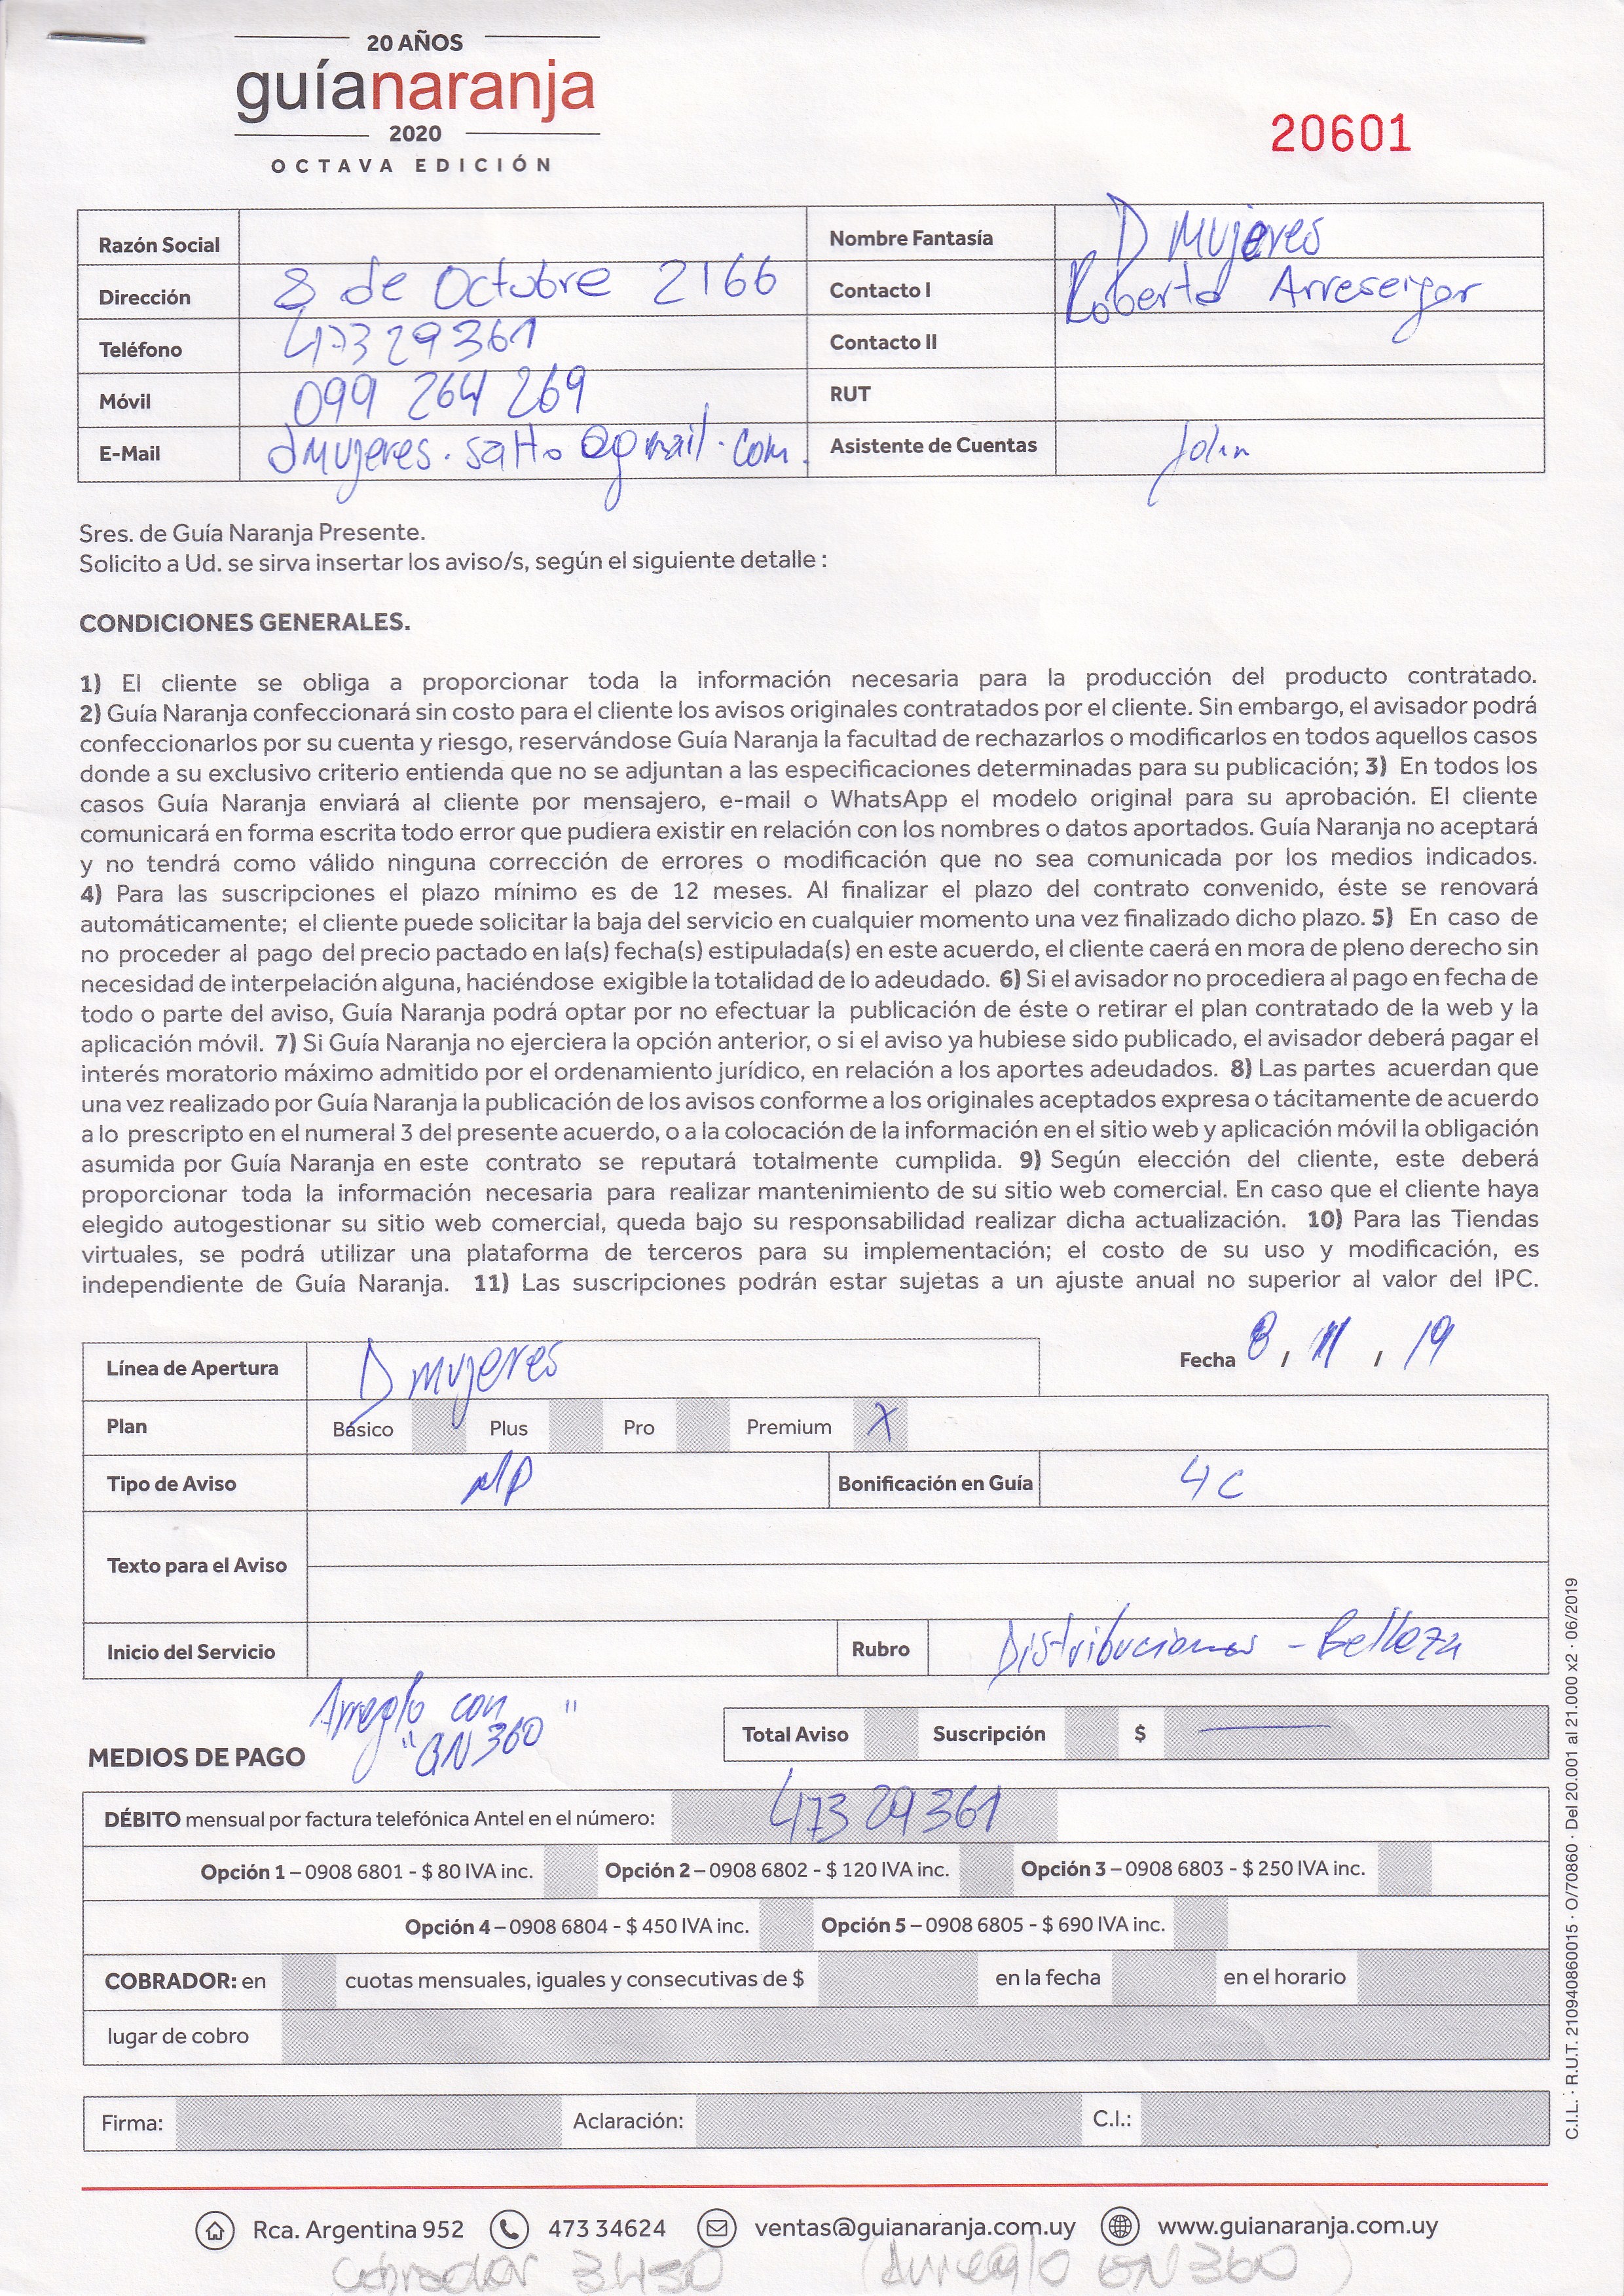 20 AÑOS
guíanaranja
2020
OCTAVA EDICIÓN
20601
Razón Social
Nombre Fantasía D mujeres
Dirección 8 de Octubre 2166
Contacto I Roberto
Teléfono 47329361
Contacto II
Móvil 099 264 269
RUT
E-Mail dmujeres.salto@gmail.com
Asistente de Cuentas John
Sres. de Guía Naranja Presente.
Solicito a Ud. se sirva insertar los aviso/s, según el siguiente detalle :
CONDICIONES GENERALES.
1) El cliente se obliga a proporcionar toda la información necesaria para la producción del producto contratado.
2) Guía Naranja confeccionará sin costo para el cliente los avisos originales contratados por el cliente. Sin embargo, el avisador podrá
confeccionarlos por su cuenta y riesgo, reservándose Guía Naranja la facultad de rechazarlos o modificarlos en todos aquellos casos
donde a su exclusivo criterio entienda que no se adjuntan a las especificaciones determinadas para su publicación; 3) En todos los
casos Guía Naranja enviará al cliente por mensajero, e-mail o WhatsApp el modelo original para su aprobación. El cliente
comunicará en forma escrita todo error que pudiera existir en relación con los nombres o datos aportados. Guía Naranja no aceptará
y no tendrá como válido ninguna corrección de errores o modificación que no sea comunicada por los medios indicados.
4) Para las suscripciones el plazo mínimo es de 12 meses. Al finalizar el plazo del contrato convenido, éste se renovará
automáticamente; el cliente puede solicitar la baja del servicio en cualquier momento una vez finalizado dicho plazo. 5) En caso de
no proceder al pago del precio pactado en la(s) fecha(s) estipulada(s) en este acuerdo, el cliente caerá en mora de pleno derecho sin
necesidad de interpelación alguna, haciéndose exigible la totalidad de lo adeudado. 6) Si el avisador no procediera al pago en fecha de
todo o parte del aviso, Guía Naranja podrá optar por no efectuar la publicación de éste o retirar el plan contratado de la web y la
aplicación móvil. 7) Si Guía Naranja no ejerciera la opción anterior, o si el aviso ya hubiese sido publicado, el avisador deberá pagar el
interés moratorio máximo admitido por el ordenamiento jurídico, en relación a los aportes adeudados. 8) Las partes acuerdan que
una vez realizado por Guía Naranja la publicación de los avisos conforme a los originales aceptados expresa o tácitamente de acuerdo
a lo prescripto en el numeral 3 del presente acuerdo, o a la colocación de la información en el sitio web y aplicación móvil la obligación
asumida por Guía Naranja en este contrato se reputará totalmente cumplida. 9) Según elección del cliente, este deberá
proporcionar toda la información necesaria para realizar mantenimiento de su sitio web comercial. En caso que el cliente haya
elegido autogestionar su sitio web comercial, queda bajo su responsabilidad realizar dicha actualización. 10) Para las Tiendas
virtuales, se podrá utilizar una plataforma de terceros para su implementación; el costo de su uso y modificación, es
independiente de Guía Naranja. 11) Las suscripciones podrán estar sujetas a un ajuste anual no superior al valor del IPC.
Fecha 8 / 11 / 19
Línea de Apertura D mujeres
Plan Básico Plus Pro Premium X
Tipo de Aviso MP Bonificación en Guía 4C
Texto para el Aviso
Inicio del Servicio Rubro Distribuciones - Belleza
Arreglo con
"GN360"
Total Aviso Suscripción $ —
MEDIOS DE PAGO
DÉBITO mensual por factura telefónica Antel en el número: 473 29361
Opción 1 – 0908 6801 - $ 80 IVA inc. Opción 2 – 0908 6802 - $ 120 IVA inc. Opción 3 – 0908 6803 - $ 250 IVA inc.
Opción 4 – 0908 6804 - $ 450 IVA inc. Opción 5 – 0908 6805 - $ 690 IVA inc.
COBRADOR: en cuotas mensuales, iguales y consecutivas de $ en la fecha en el horario
lugar de cobro
Firma: Aclaración: C.I.:
C.I.L. · R.U.T. 210940860015 · O/70860 · Del 20.001 al 21.000 x2 · 06/2019
Rca. Argentina 952 473 34624 ventas@guianaranja.com.uy www.guianaranja.com.uy
Cobrador 3450 (Arreglo GN360)